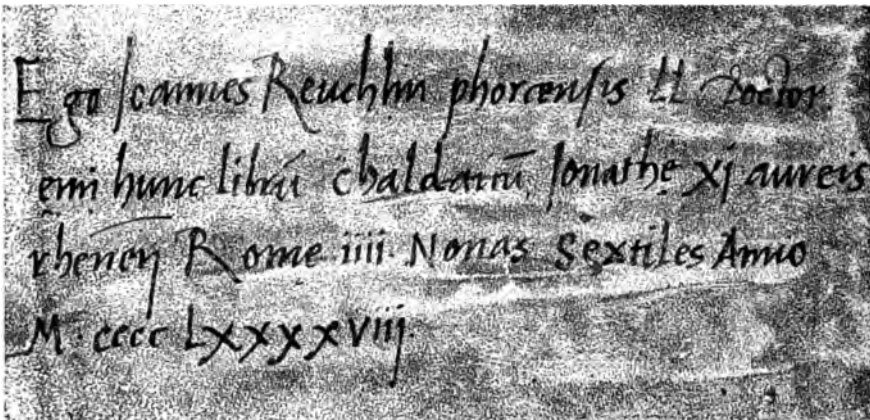 Ego Ioannes Reuchlin phorcensis LL Doctor.
emi hunc librū chaldaicū Ionathę xj aureis
rhenen̄ Rome iiii. Nonas Sextiles Anno
M. cccc LXXXXviij.